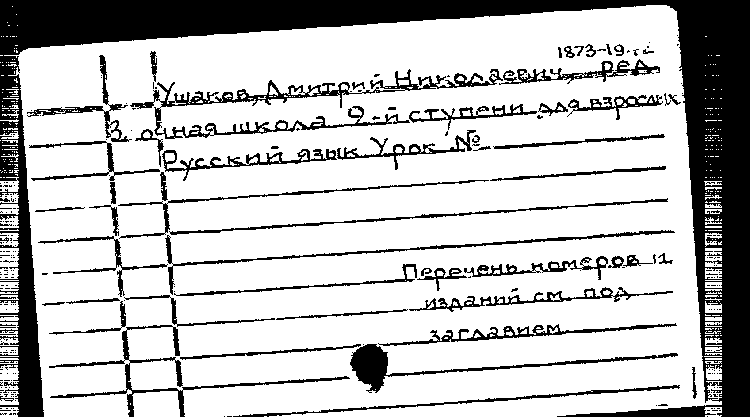 1873-19
Ушаков, Дмитрий Николаевич, ред.
Заочная школа 2-й ступени для взрослых
Русский язык Урок №
Перечень номеров и
изданий см. под
заглавием